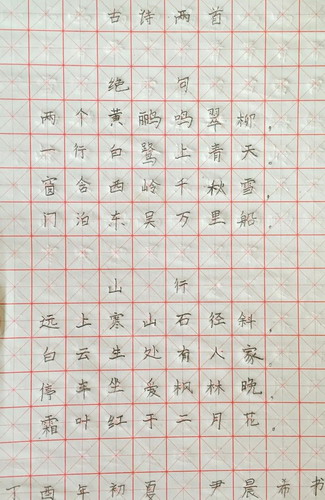 古诗两首
绝句
两个黄鹂鸣翠柳，
一行白鹭上青天。
窗含西岭千秋雪，
门泊东吴万里船。
山行
远上寒山石径斜，
白云生处有人家。
停车坐爱枫林晚，
霜叶红于二月花。
丁酉年初夏 尹晨希书